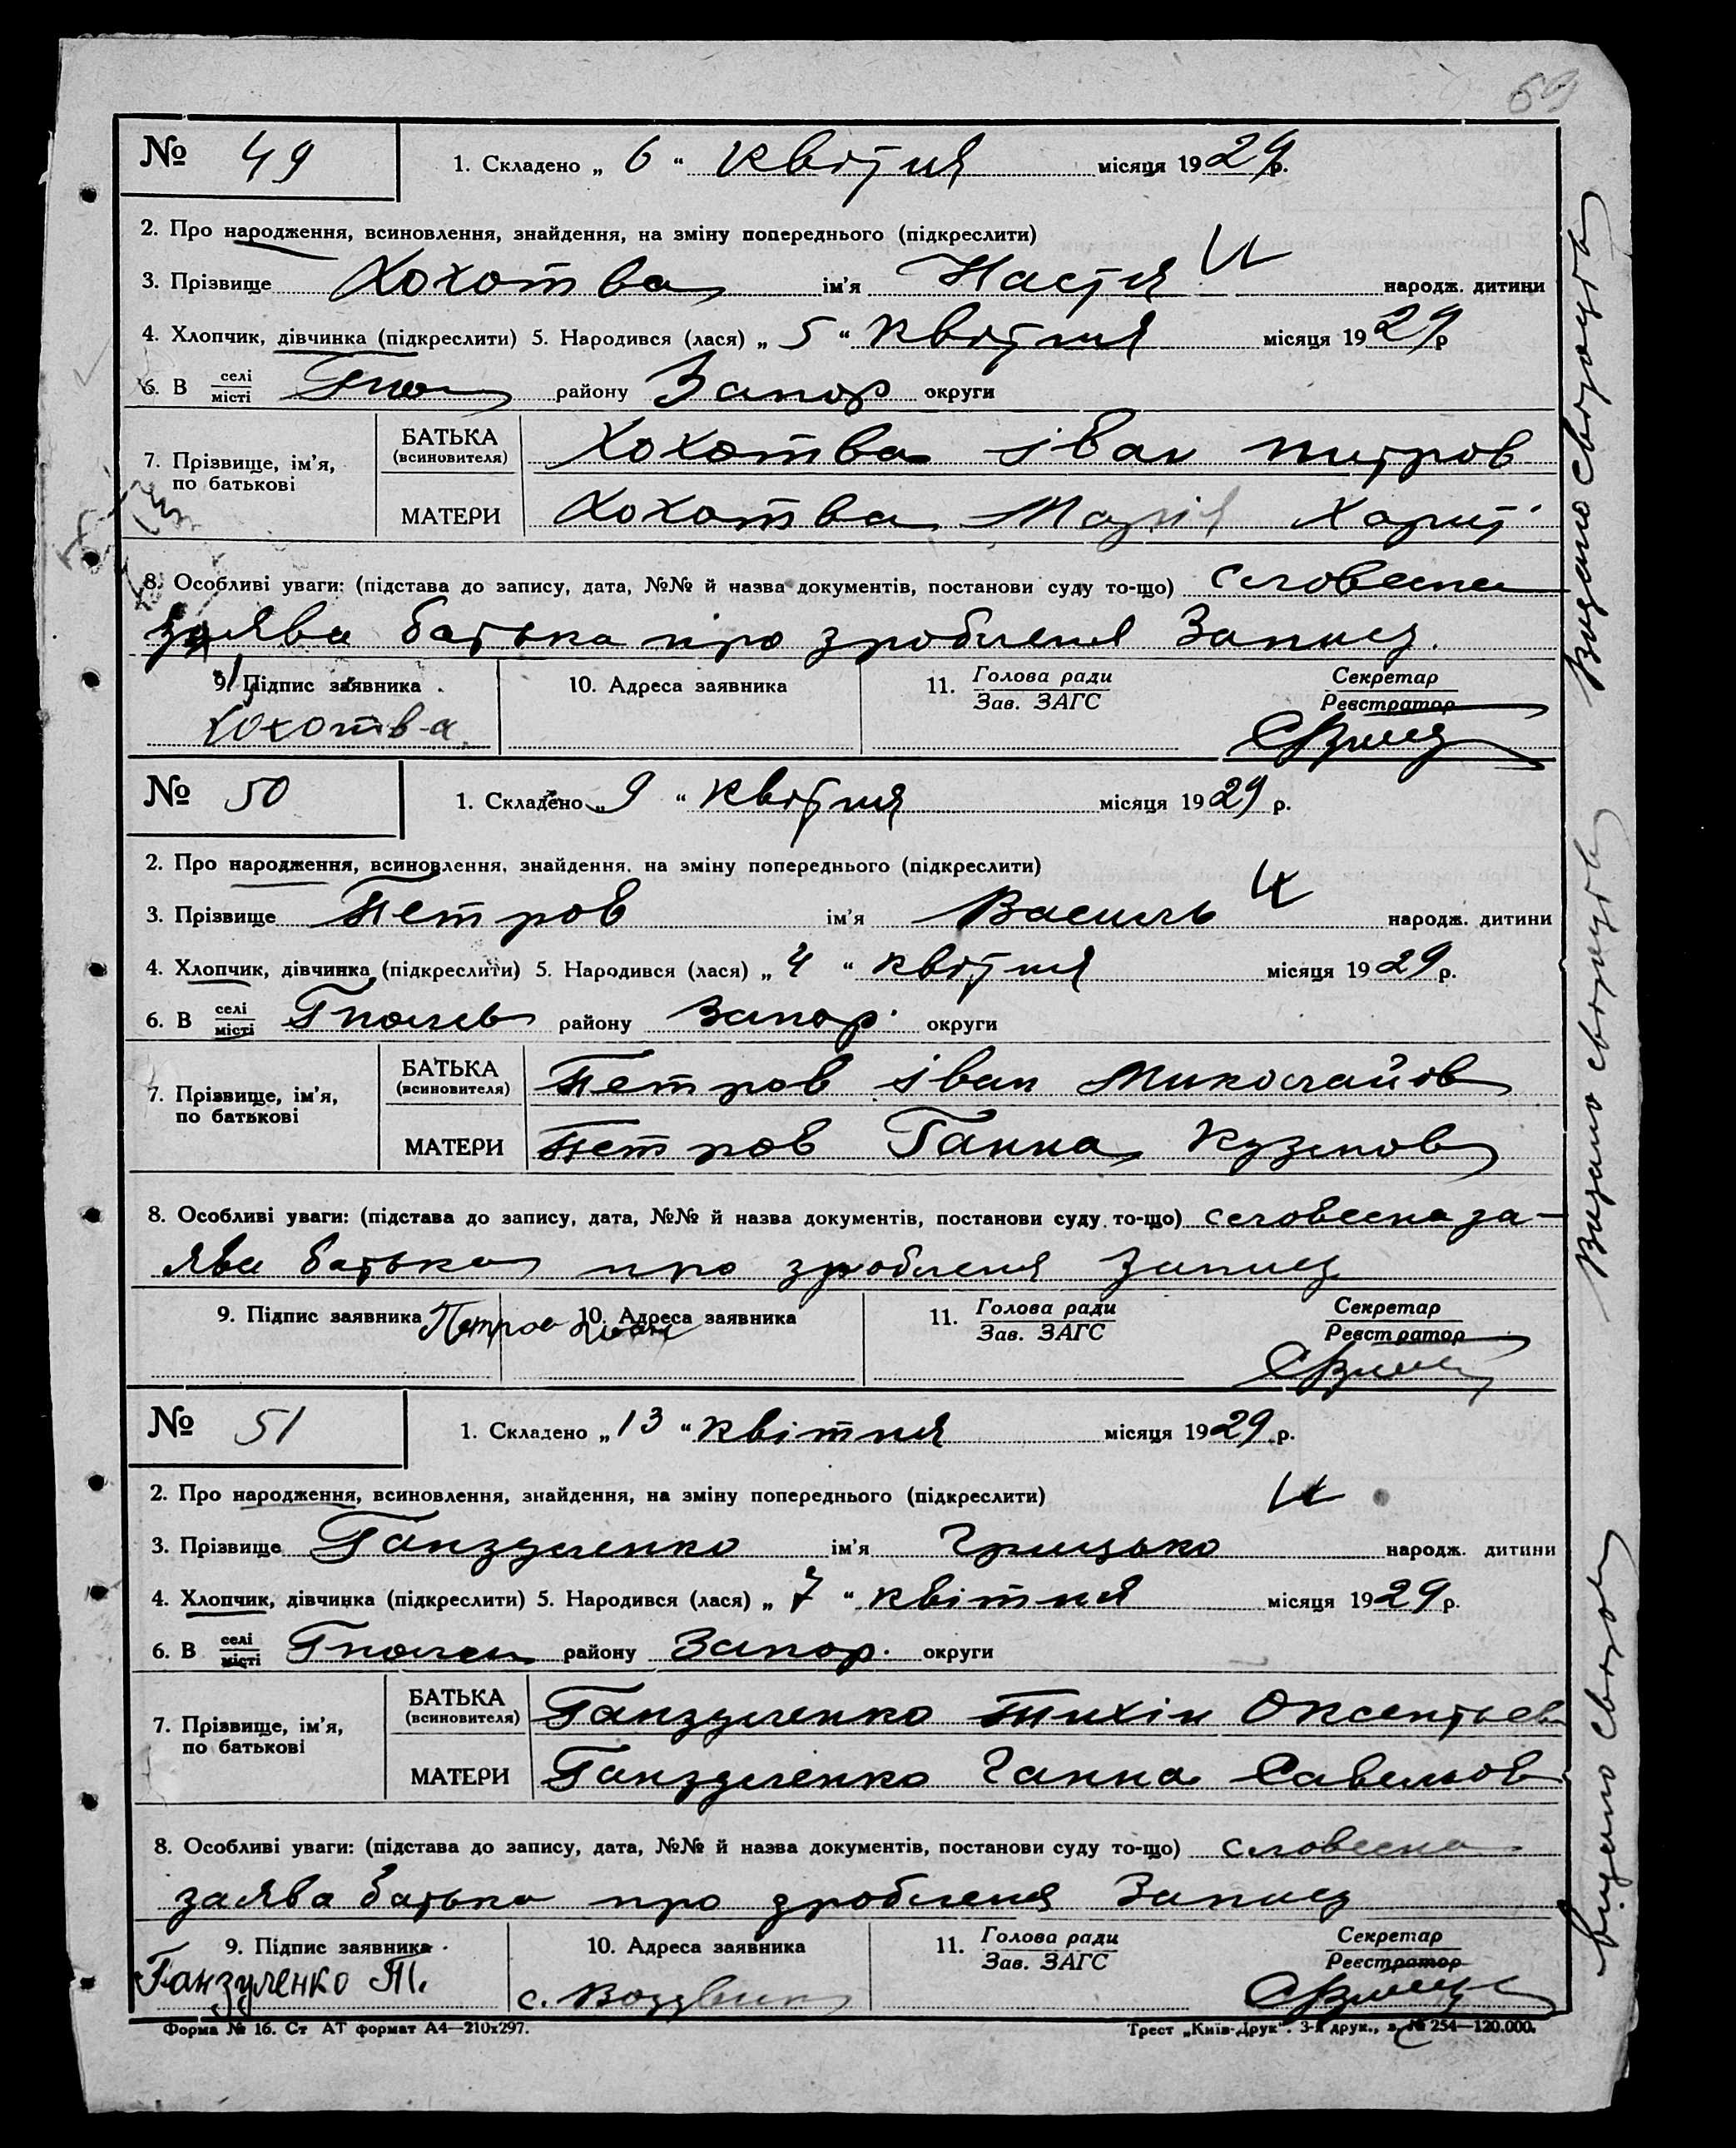 69
№ 49 1. Складено „ 6 “ Квітня місяця 1929 р.
2. Про народження, всиновлення, знайдення, на зміну попереднього (підкреслити)
3. Прізвище Хохотва ім'я Настя народж. дитини
4. Хлопчик, дівчинка (підкреслити) 5. Народився (лася) „ 5 “ Квітня місяця 1929 р
6. В селі місті району Запор округи
7. Прізвище, ім'я, по батькові
БАТЬКА (всиновителя) Хохотва Іван Питров
МАТЕРИ Хохотва Марія Харит
8. Особливі уваги: (підстава до запису, дата, №№ й назва документів, постанови суду то-що) словесна
заява батька про зроблення Запису.
9. Підпис заявника 10. Адреса заявника 11. Голова ради Зав. ЗАГС Секретар Реєстратор
Хохотва
Видано свідоцтв
№ 50 1. Складено „ 9 “ Квітня місяця 1929 р.
2. Про народження, всиновлення, знайдення, на зміну попереднього (підкреслити)
3. Прізвище Петров ім'я Василь народж. дитини
4. Хлопчик, дівчинка (підкреслити) 5. Народився (лася) „ 4 “ Квітня місяця 1929 р.
6. В селі місті району Запор. округи
7. Прізвище, ім'я, по батькові
БАТЬКА (всиновителя) Петров Іван Миколайов
МАТЕРИ Петров Ганна Кузмов
8. Особливі уваги: (підстава до запису, дата, №№ й назва документів, постанови суду то-що) словесна за-
ява батька про зроблення Запису
9. Підпис заявника Петров Иван 10. Адреса заявника 11. Голова ради Зав. ЗАГС Секретар Реєстратор
Видано свідоцтв
№ 51 1. Складено „ 13 “ Квітня місяця 1929 р.
2. Про народження, всиновлення, знайдення, на зміну попереднього (підкреслити)
3. Прізвище Ганзуленко ім'я Грицько народж. дитини
4. Хлопчик, дівчинка (підкреслити) 5. Народився (лася) „ 7 “ Квітня місяця 1929 р.
6. В селі місті району Запор. округи
7. Прізвище, ім'я, по батькові
БАТЬКА (всиновителя) Ганзуленко Тихін Оксентьев
МАТЕРИ Ганзуленко Ганна Савельов
8. Особливі уваги: (підстава до запису, дата, №№ й назва документів, постанови суду то-що) словесна
заява батька про зроблення Запису
9. Підпис заявника 10. Адреса заявника 11. Голова ради Зав. ЗАГС Секретар Реєстратор
Ганзуленко Т. с.
видано свідоц
Форма № 16. Ст АТ формат А4—210х297.
Трест „Київ-Друк“. 3-я друк., з. № 254—120.000.